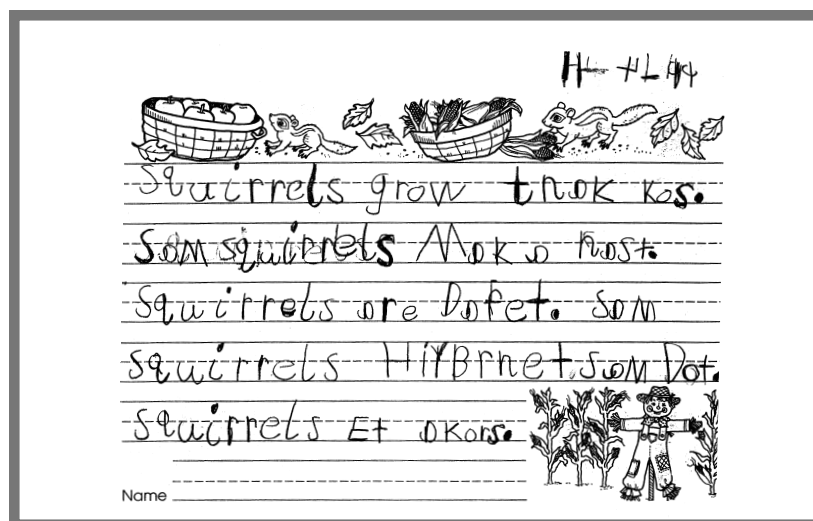 Squirrels grow thak kos.
Sam squirrels Mak a nast.
Squirrels are Dafet. Sam
squirrels HiYBrnet. Sam Dot.
Squirrels Et akors.
Name